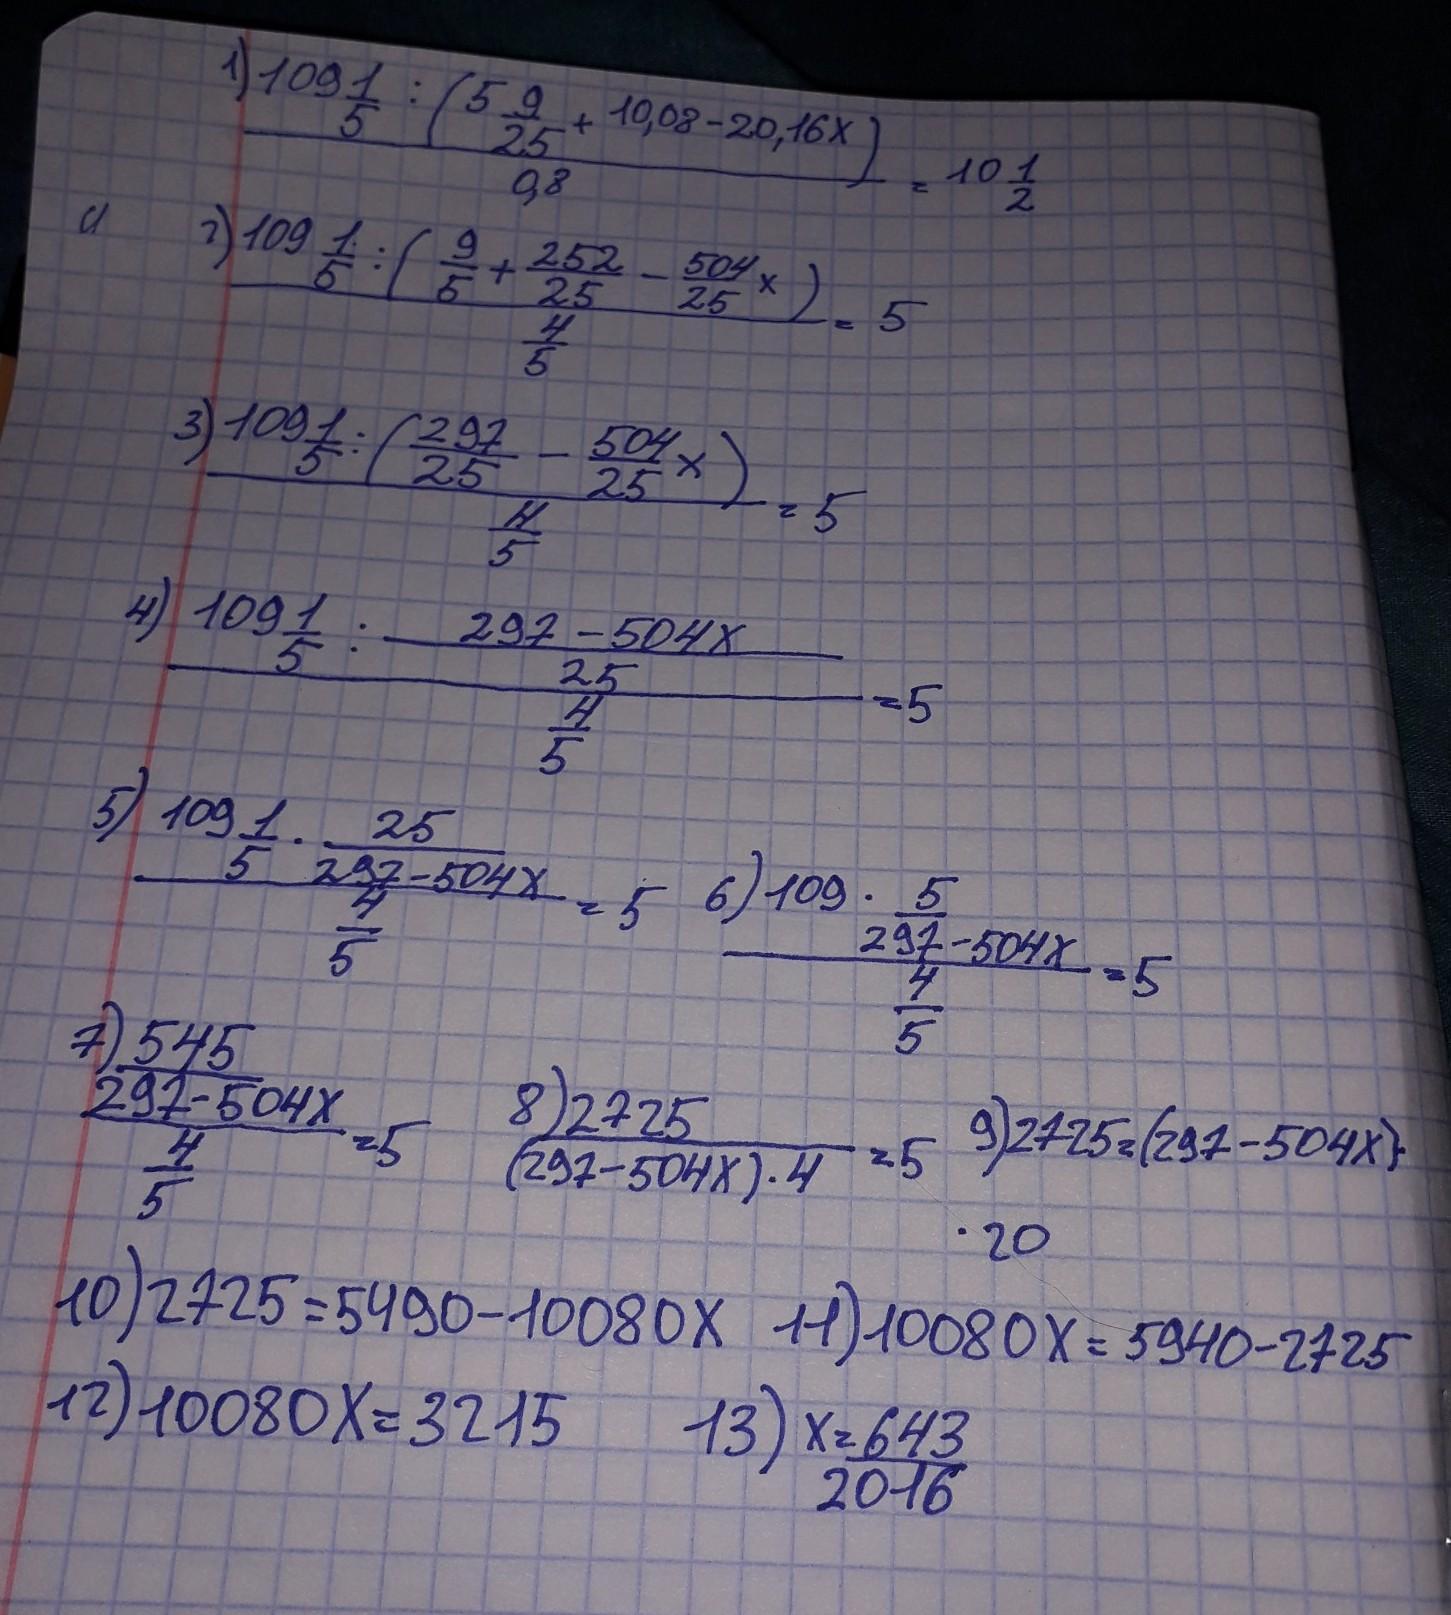 1) 109 1/5 : (5 9/25 + 10,08 - 20,16x) / 0,8 = 10 1/2
2) 109 1/5 : (9/5 + 252/25 - 504/25 x) / 4/5 = 5
3) 109 1/5 : (297/25 - 504/25 x) / 4/5 = 5
4) 109 1/5 : (297 - 504x)/25 / 4/5 = 5
5) 109 1/5 · 25/(297 - 504x) / 4/5 = 5 6) 109 · 5/(297 - 504x) / 4/5 = 5
7) 545/(297 - 504x) / 4/5 = 5 8) 2725/((297 - 504x) · 4) = 5 9) 2725 = (297 - 504x) ·
· 20
10) 2725 = 5490 - 10080x 11) 10080x = 5940 - 2725
12) 10080x = 3215 13) x = 643/2016